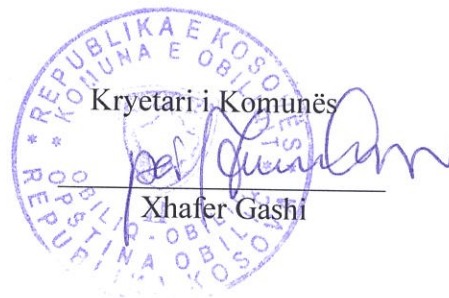 REPUBLIKA E KOSOVËS
KOMUNA E OBILIQIT
Kryetari i Komunës
për
Xhafer Gashi
OBILIQ - OBILIĆ
OPŠTINA OBILIĆ
REPUBLIKA KOSOVO